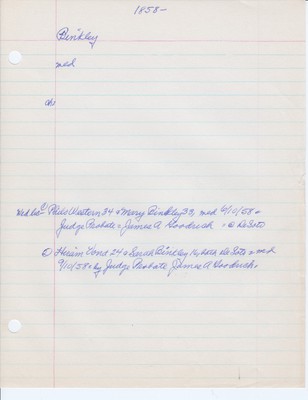 1858-
Binkley
med
ch:
Wed Rec 1) Philo Western 34 & Mary Binkley 33, med 9/10/58 -
Judge Probate - James A Goodrich - @ DeSoto
2) Hiram Cone 24 & Sarah Binkley 16, both DeSoto - med
9/10/58 - by Judge Probate James A Goodrich,